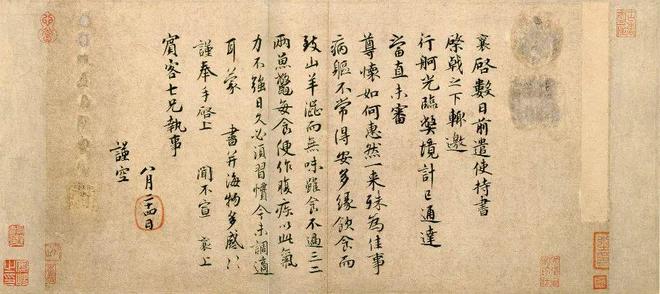 襄啓數日前遣使持書
棨戟之下輙邀
行舸光臨弊境計已通達
當直未審
尊懷如何惠然一來殊為佳事
病軀不常得安多緣飲食而
致山羊澀而無味雖食不過三二
兩魚鱉每食便作腹疾以此氣
力不強日久必須習慣今未調適
耳蒙 書并海物多感〻
謹奉手啓上 聞不宣 襄上
賓客七兄執事
八月二十四日
謹空